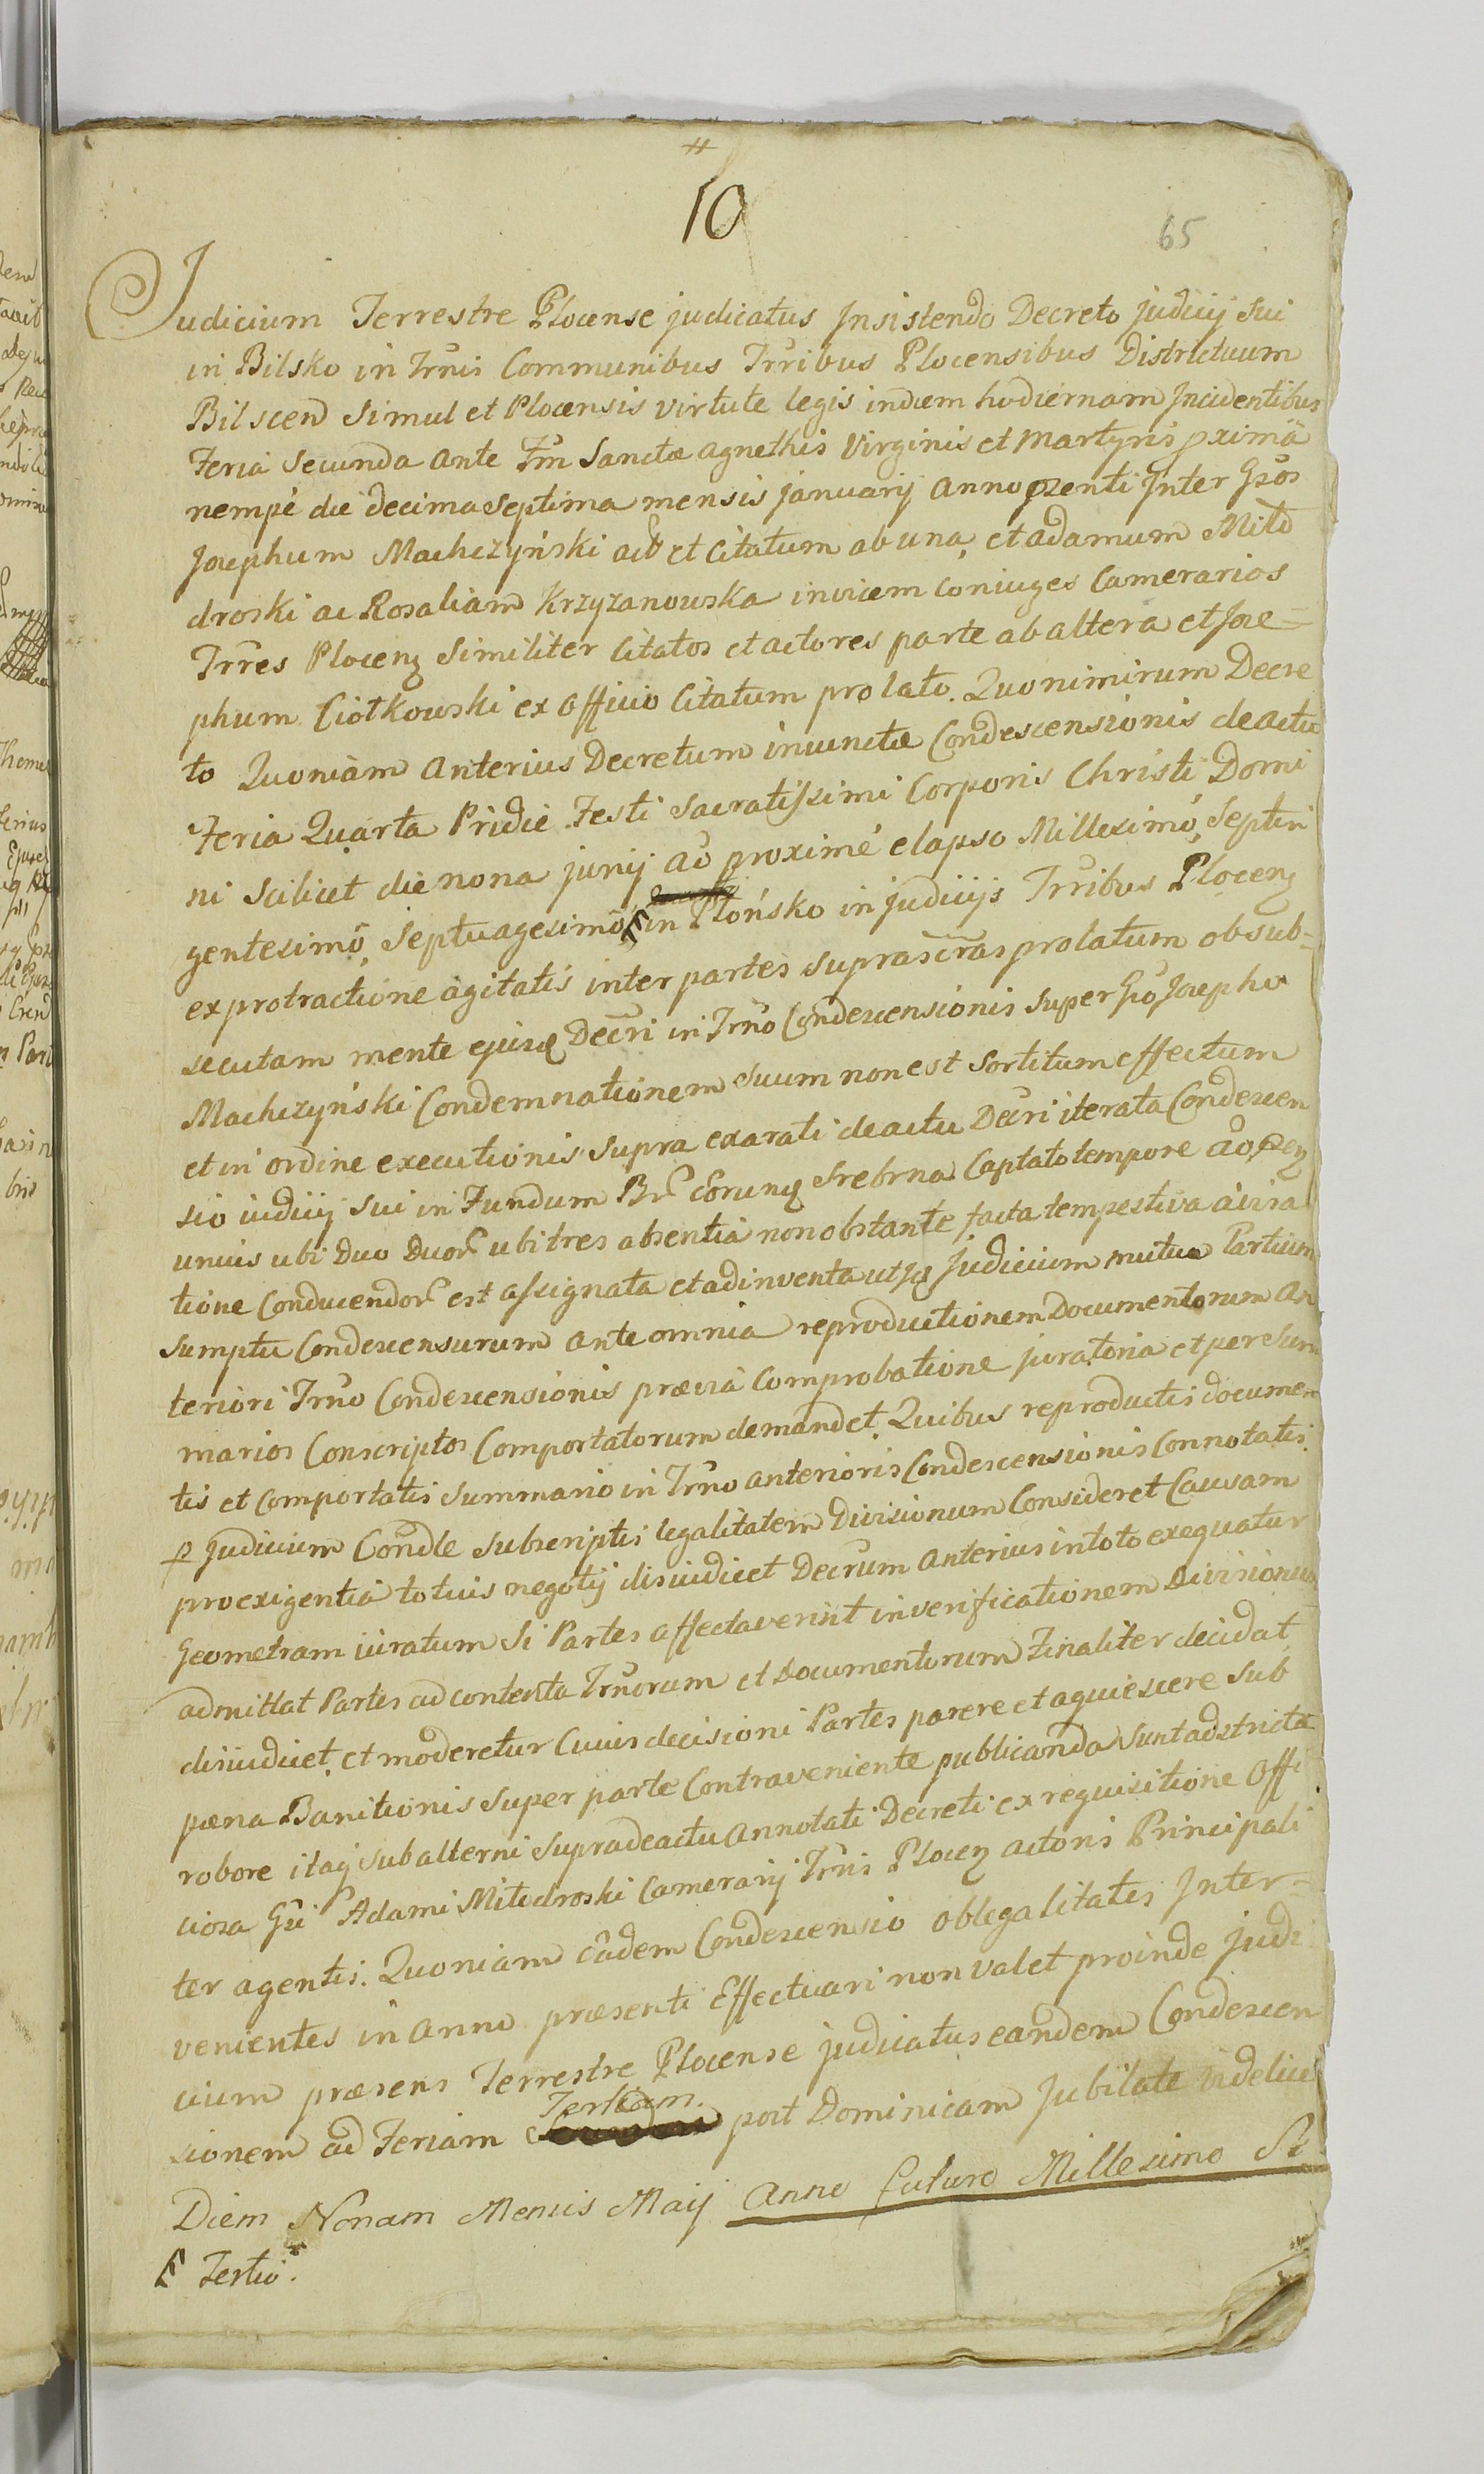 10
65
Judicium Terrestre Plocense judicatus Insistendo Decreto judicij sui
in Bilsko in Trnis Communibus Trribus Plocensibus Districtuum
Bilscen simul et Plocensis virtute legis indiem hodiernam Incidentibus
Feria Secunda ante Ftm Sanctæ Agnethis Virginis et Martyris pximã
nempé die decima Septima mensis januarij anno pzenti Inter Gsos
Josephum Machczyński act et Citatum ab una, et adamum Mile
droski ac Rosaliam Krzyzanowska invicem Coniuges Camerarios
Trres Plocens Similiter Citatos et actores parte ab altera et Jose=
phum Ciołkowski ex officio Citatum prolato. Quonimirum Decre
to Quoniàm Anterius Decretum iniunctæ Condescensionis deactu
Feria Quarta Pridie Festi Sacratissimi Corporis Christi Domi
ni Scilicet die nona junij ao proximé elapso Millesimó, Septin
gentesimó, Septuagesimó in Płońsko in judicijs Trribus Plocens
ex protractione agitatis inter partes suprascras prolatum ob sub=
secutam mente ejusd Decri in Trno Condescensionis super Gso Josepho
Machczyński Condemnationem suum non est Sortitum effectum
et in ordine executionis supra exarati deactu Decri iterata Condescen
sio iudicij sui in Fundum Br Srebrna Captato tempore ao
unius ubi duo duor ubi tres absentiã non obstante facta tempestiva avisa
tione Conducendor est assignata et adinventa utsq Judicium mutuo Partium
Sumptu Condescensurum ante omnia reproductionem Documentorum An
teriori Trno Condescensionis præviã Comprobatione juratoria et per Sum
marios Conscriptos Comportatorum demandet. Quibus reproductis documen
tis et Comportatis Summario in Trno anterioris Condescensionis Connotatis
p Judicium Condle Subscriptis legalitatem Divisionum Consideret Causam
pro exigentiã totius negotij disiudicet Decrum anterius in toto exequatur
Geometram iuratum Si Partes affectaverint in verificationem Divisionum
admittat Partes ad contenta Trnorum et Documentorum Finaliter decidat
disiudicet, et moderetur Cuius decisioni Partes parere et aquiescere sub
pœna Banitionis super parte Contraveniente publicanda Sunt adstrictæ
robore itaq subalterni supradeactu annotati Decreti ex requisitione offi
ciosa Gsi Adami Miledroski Camerarij Trris Plocens actoris Principali
ter agentis. Quoniam eadem Condescensio ob legalitates Inter=
venientes in Anno præsenti Effectuari non valet proinde Judi
cium præsens Terrestre Plocense judicatus eandem Condescen
sionem ad Feriam Tertiam post Dominicam Jubilate videlicet
Diem Nonam Mensis Maij Anno futuro Millesimo
Tertio.